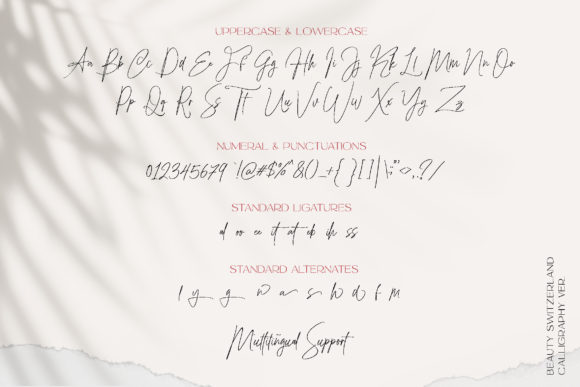 UPPERCASE & LOWERCASE
Aa Bb Cc Dd Ee Ff Gg Hh Ii Jj Kk Ll Mm Nn Oo
Pp Qq Rr Ss Tt Uu Vv Ww Xx Yy Zz
NUMERAL & PUNCTUATIONS
0123345679 `!@#$%^&()_+{ }[ ]|\:;"<>,.?/
STANDARD LIGATURES
al oo ee it at eb ih ss
STANDARD ALTERNATES
l y g w a s h d f m
Multilingual Support
BEAUTY SWITZERLAND
CALLIGRAPHY VER.